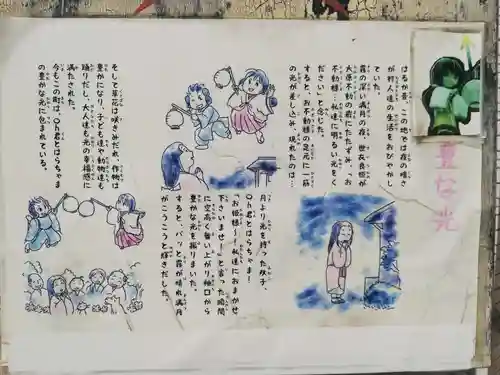 豊な光
はるか昔、この地では夜の暗さ
が村人達の生活をおびやかし
ていた。
霧の深い満月の夜、世衣良姫が
大原不動の前にたたずみ、「お
不動様…私達に明るい光をく
ださい」と念じた。
すると、お不動様の足元に一筋
の光が差し込み、現れたのは…
月より光を持った双子、
Oh君とはらちゃま!
「お姫様…!私達におまかせ
下さいませ!」と言った瞬間
に空高く舞い上がり袖口から
豊かな光を振りまいた。
すると、パッと霧が晴れ満月
がこうこうと輝きだした。
そして草花は咲きみだれ、作物は
豊かになり、子ども達や動物達も
踊りだし、大人達も光の幸福感に
満たされた。
今もこの町は、Oh君とはらちゃま
の豊かな光に包まれている。